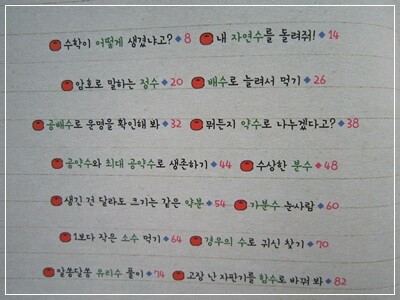 수학이 어떻게 생겼냐고? ◆ 8 내 자연수를 돌려줘! ◆ 14
암호로 말하는 정수 ◆ 20 배수로 늘려서 먹기 ◆ 26
공배수로 운명을 확인해 봐 ◆ 32 뭐든지 약수로 나누겠다고? ◆ 38
공약수와 최대 공약수로 생존하기 ◆ 44 수상한 분수 ◆ 48
생긴 건 달라도 크기는 같은 약분 ◆ 54 가분수 눈사람 ◆ 60
1보다 작은 소수 먹기 ◆ 64 경우의 수로 귀신 찾기 ◆ 70
알쏭달쏭 유리수 풀이 ◆ 74 고장 난 자판기를 함수로 바꿔 봐 ◆ 82